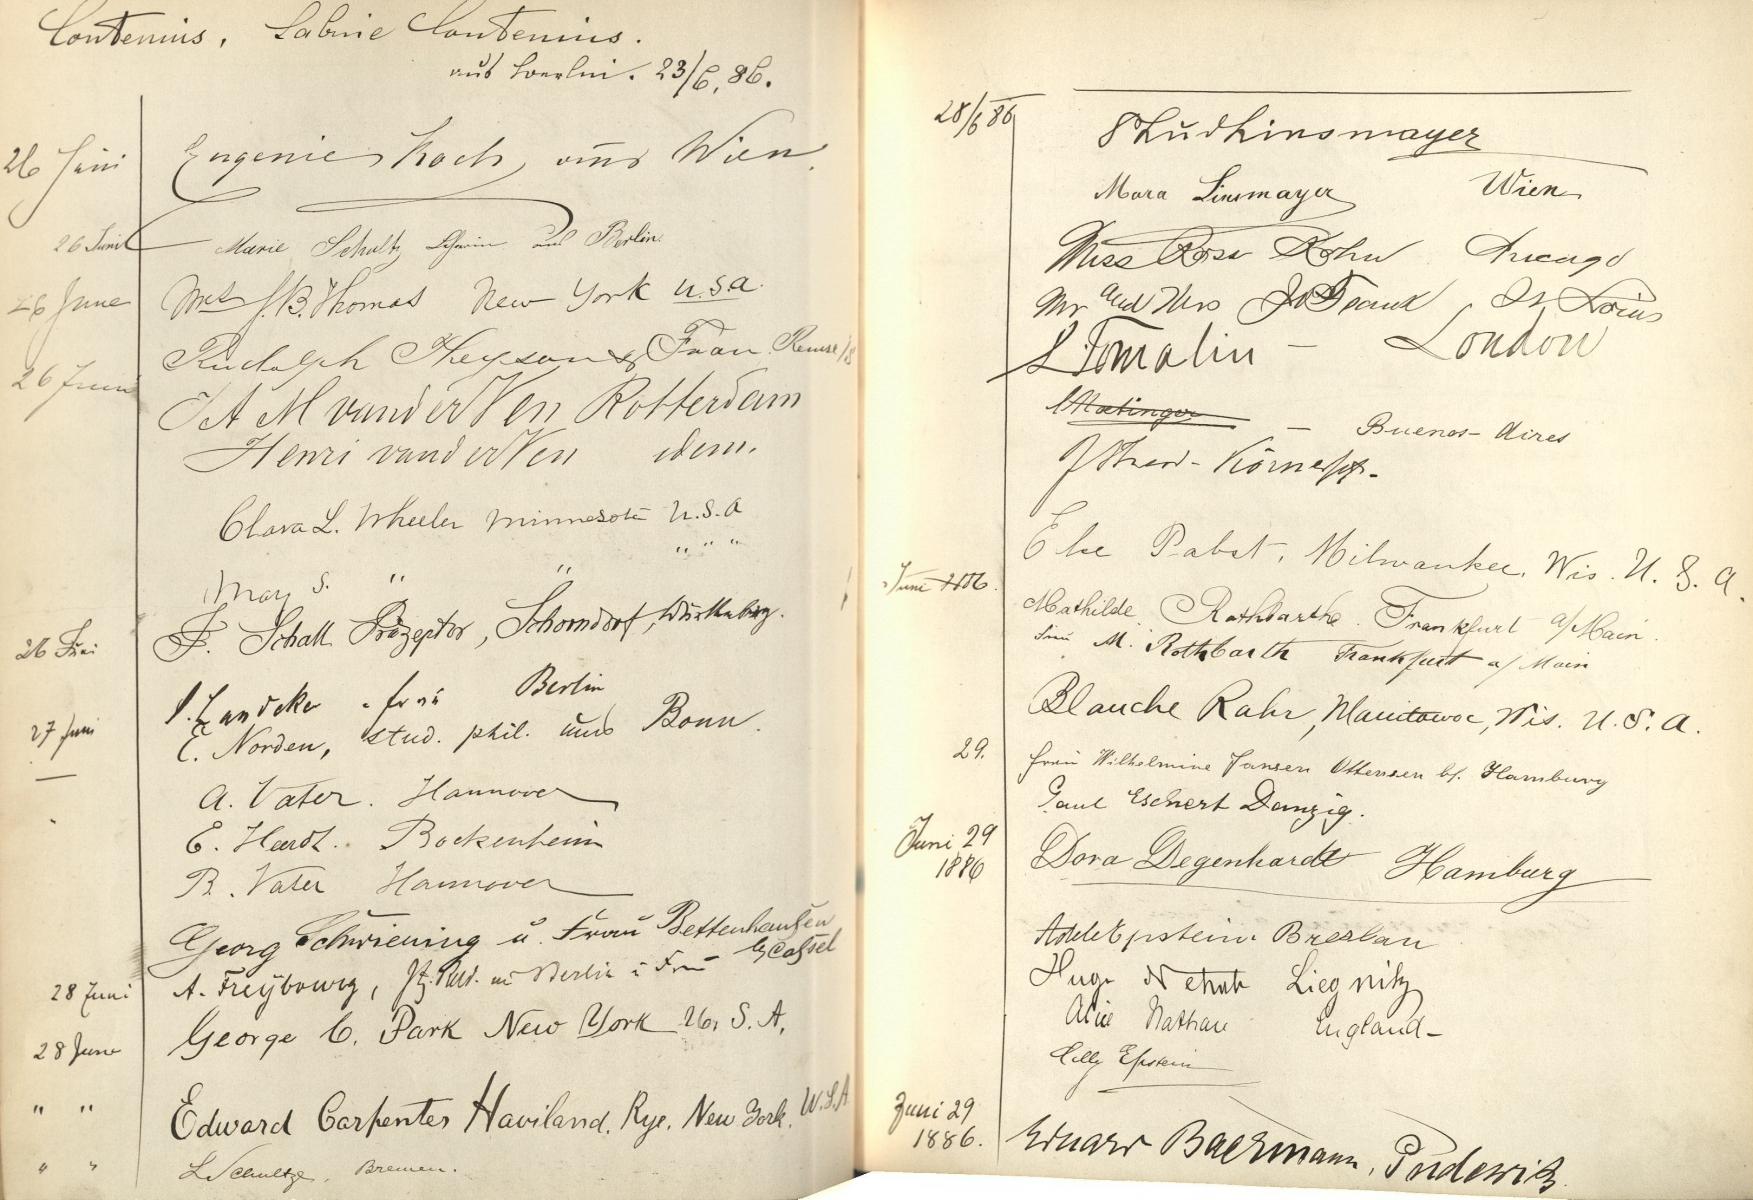 Contenius, Sabine Contenius.
aus Berlin. 23/6, 86.
26 Juni Eugenie Koch, aus Wien.
26 Juni Marie Schultz aus Berlin.
26 June Mrs J. B. Thomas New York U.S.A.
Rudolph & Frau
26 Juni J A M van der Ven Rotterdam
Henri van der Ven idem.
Clara L. Wheeler Minnesota U.S.A
May S. " " " " "
26 Juni F. Schall Präzeptor, Schorndorf, Württemberg.
Berlin
27 Juni E. Norden, stud. phil. aus Bonn.
A. Vater. Hannover
E. Hardt. Bockenheim
R. Vater Hannover
Georg Schwiening u. Frau Bettenhausen
b/Cassel
28 Juni A. Freybourg, Berlin u Frau
28 June George C. Park New York U. S. A.
" " Edward Carpenter Haviland. Rye. New York. U.S.A
" " L Schultze, Bremen.
28/6 86
Mara Linsmayer Wien
Miss Rosa Kohn Chicago
Mr and Mrs J Frank St Louis
L Tomalin – London
– Buenos-Aires
Else Pabst, Milwaukee, Wis. U. S. A.
Juni 1886. Mathilde Rothbarth. Frankfurt a/Main.
M. Rothbarth Frankfurt a/Main
Blanche Rahr, Manitowoc, Wis. U. S. A.
29. Frau Wilhelmine Jansen Ottensen b/. Hamburg
Paul Eschert Danzig.
Juni 29
1886 Dora Degenhardt Hamburg
Adele Epstein. Breslau
Hugo Liegnitz
Alice Nathan England–
Epstein
Juni 29
1886. Eduard Baermann, Pudewitz.